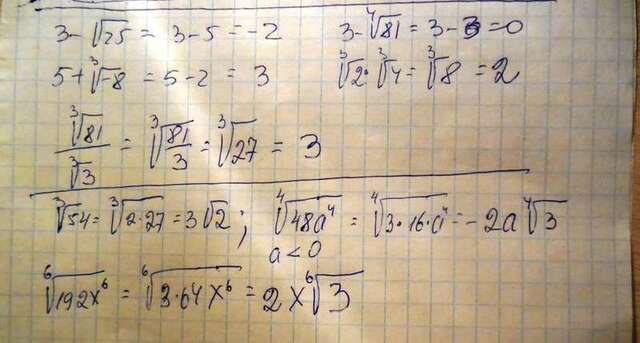 3-√25 = 3-5 = -2  3-⁴√81 = 3-3 = 0
5+³√-8 = 5-2 = 3  ³√2·³√4 = ³√8 = 2
³√81/³√3 = ³√(81/3) = ³√27 = 3
³√54 = ³√(2·27) = 3√2 ; ⁴√(48a⁴) = ⁴√(3·16·a⁴) = -2a⁴√3
a<0
⁶√(192x⁶) = ⁶√(3·64x⁶) = 2x⁶√3